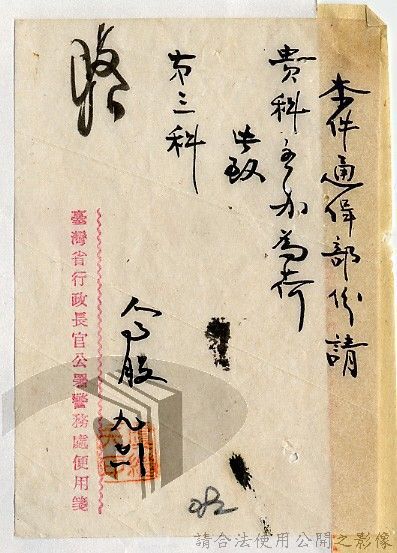 本件通緝部份請
貴科主办為荷
此致
第三科
臺灣省行政長官公署警務處便用箋
請合法使用公開之影像